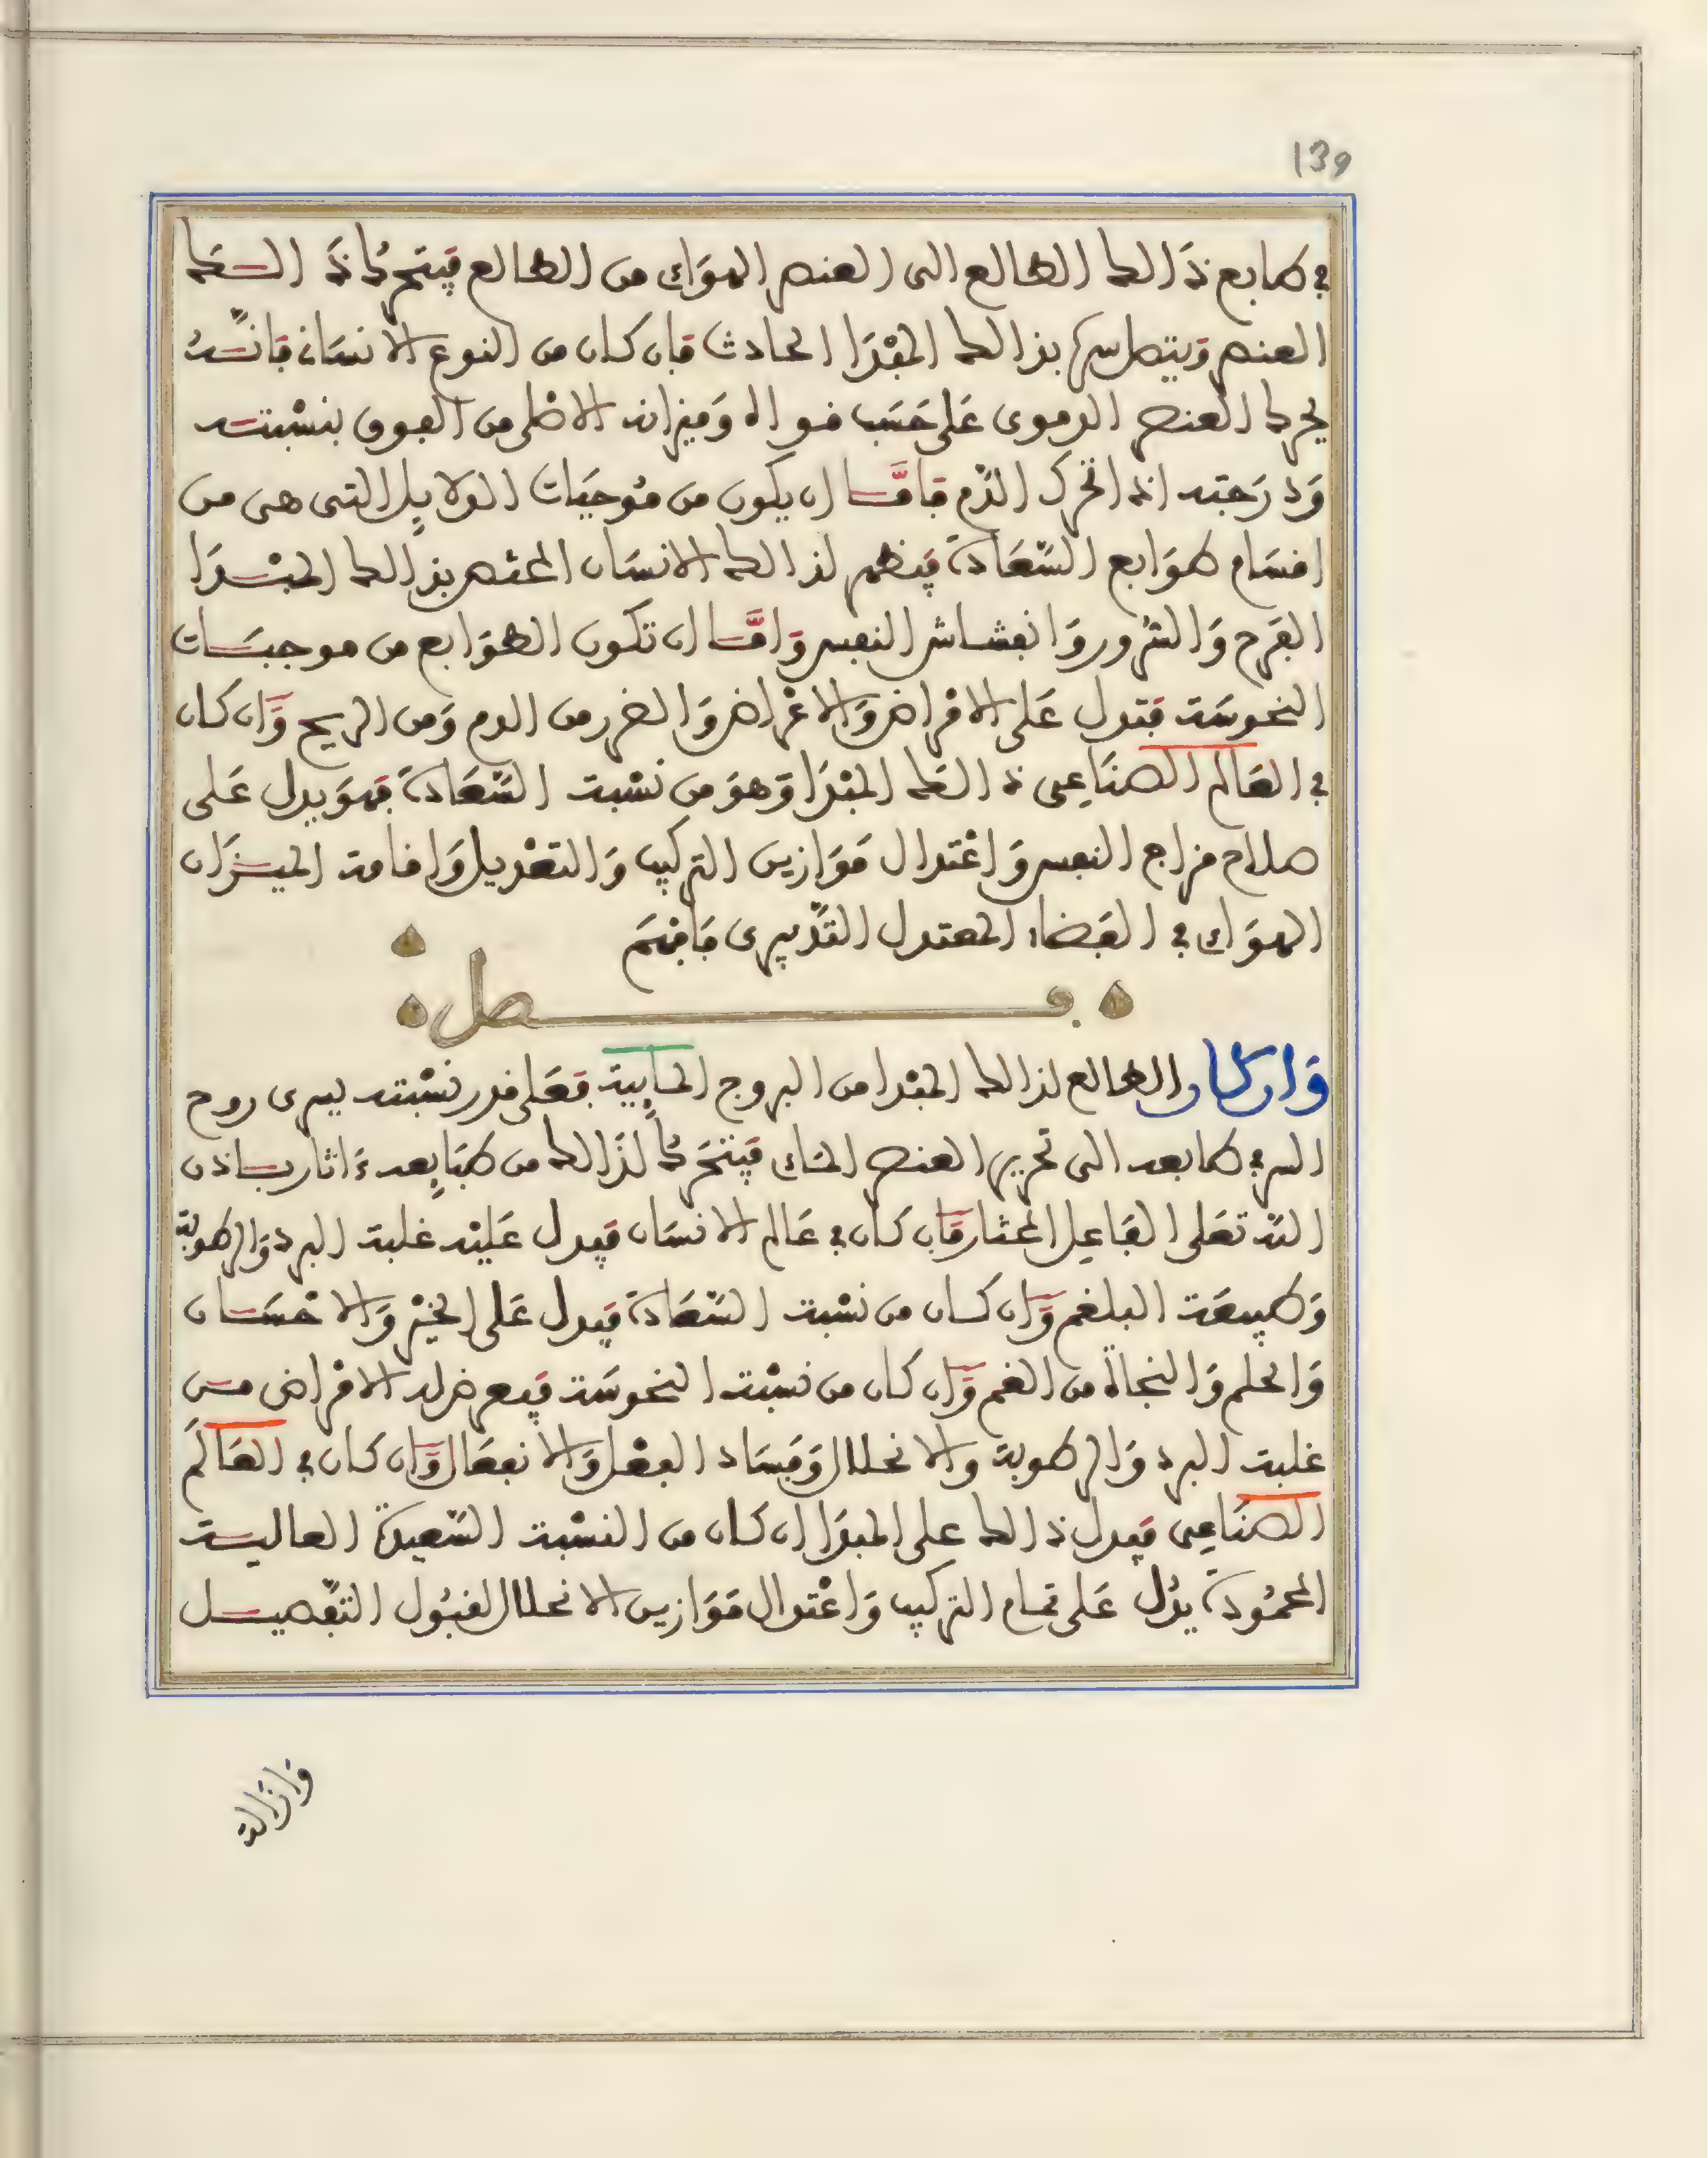 139
في طابع ذَالك الطالع الى العنصر الهوَاى من الطالع فيتحرك ذَالك
العنصر ويتصل سره بذالك المبْدَا الحادث فان كان من النوع الانسَانى فانه
يحرك العنصر الدموى عَلى حَسَب قواه وَميزانه الاصلى من الفوق بنسْبته
وَدرَجته اذا تحرك الدَّم فامَّا ان يكون من مُوجبَات الدلايل التى هى من
اقسَام طوَابع السَّعَادة فيظهر لذالك الانسَان المختص بذالك المبْدَا
الفرَح وَالسُّرور وَانعشاش النفس وَامَّا ان تكون الطوَابع من موجبَات
النحوسَة فتدل عَلى الامْراض وَالاعْراض وَالضرر من الدم وَمن الريح وَان كان
في العَالم الصنَاعِى ذَالك المبْدَا وَهوَ من نسْبة السَّعَادة فهوَ يدل عَلى
صلاح مزاج النفس وَاعْتدال مَوَازين التركيب وَالتعْديل وَاقامة الميزَان
الهوَاى في الفضاء المعتدل التدْبيرى فافهَم
فصل
وَان كان الطالع لذالك المبْدا من البروج المَايية فعَلى قدر نسْبته يسرى روح
السر في طابعه الى تحريك العنصر المَاى فيتحَرك لذَالك من طبَايعه ءاثار باذن
الله تعَلى الفَاعِل المختار فان كان في عَالم الانسَان فيدل عَليْه غلبة البرد وَالرطوبة
وَطبيعَة البلغم وَان كان من نسْبة السَّعَادة فيدل عَلى الخيْر وَالاحْسَان
وَالحلم وَالنجاة من الغم وَان كان من نسْبة النحوسَة فيعرض له الامْراض من
غلبة البرد وَالرطوبة وَالانحلال وَفسَاد الفعْل وَالانفعَال وَان كان في العَالَم
الصنَاعِى فيدل ذالك على المبدَا ان كان من النسْبة السَّعيدة العالية
المحمُودة يدُل عَلى تمام التركيب وَاعْتدال مَوَازين الانحلال لقبُول التفْصيل
وَازَالة